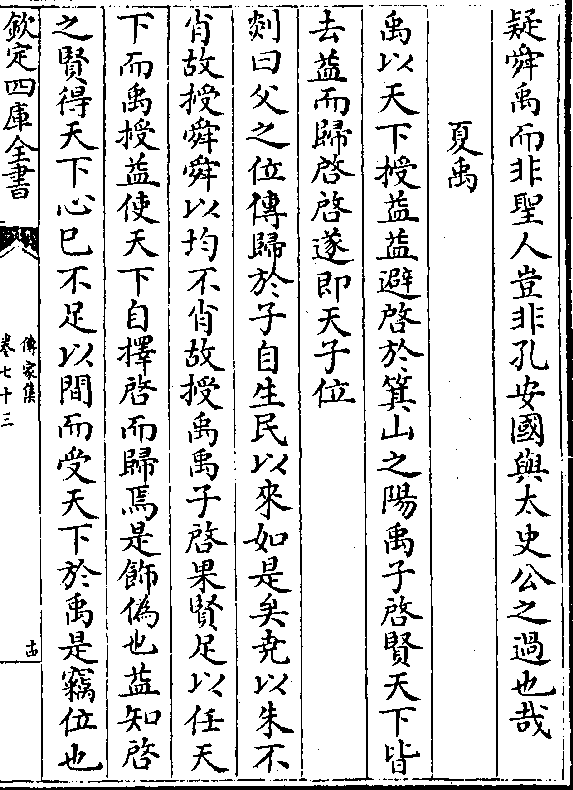 疑舜禹而非聖人豈非孔安國與太史公之過也哉
夏禹
禹以天下授益益避啓於箕山之陽禹子啓賢天下皆
去益而歸啓啓遂即天子位
剡曰父之位傳歸於子自生民以來如是矣堯以朱不
肖故授舜舜以均不肖故授禹禹子啓果賢足以任天
下而禹授益使天下自擇啓而歸焉是飾僞也益知啓
之賢得天下心已不足以間而受天下於禹是竊位也
欽定四庫全書
傳家集
卷七十三
十四